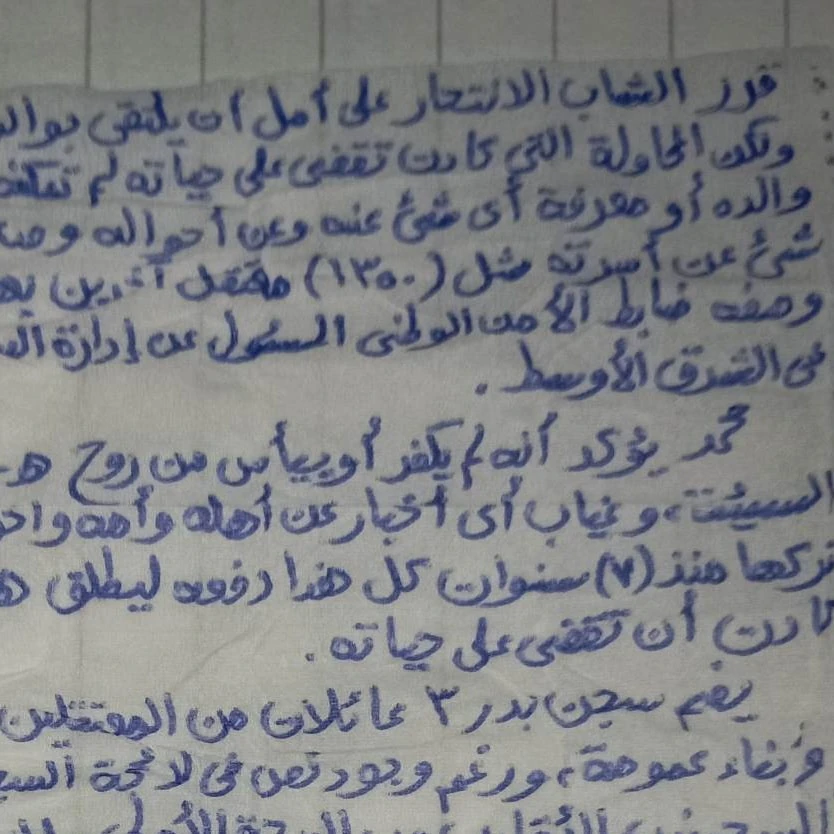 قرر الشاب الانتحار على أمل أن يلتقى بوالد
ولكن المحاولة التي كادت تقضى على حياته لم تكف
والده أو معرفة أى شئ عنه وعن أحواله وعن
شئ عن أسرته مثل (١٣٥٠) معتقل آخرين
وصفه ضابط الأمن الوطنى المسئول عن إدارة
فى الشرق الأوسط .
محمد يؤكد أنه لم يكفر أو ييأس من روح
السيئة، وغياب أى أخبار عن أهله وأمه
تركها منذ (٧) سنوات كل هذا دفعه ليطلق
كادت أن تقضى على حياته .
يضم سجن بدر ٣ عائلات من المعتقلين
وأبناء عمومة، ورغم وجود نص فى لائحة